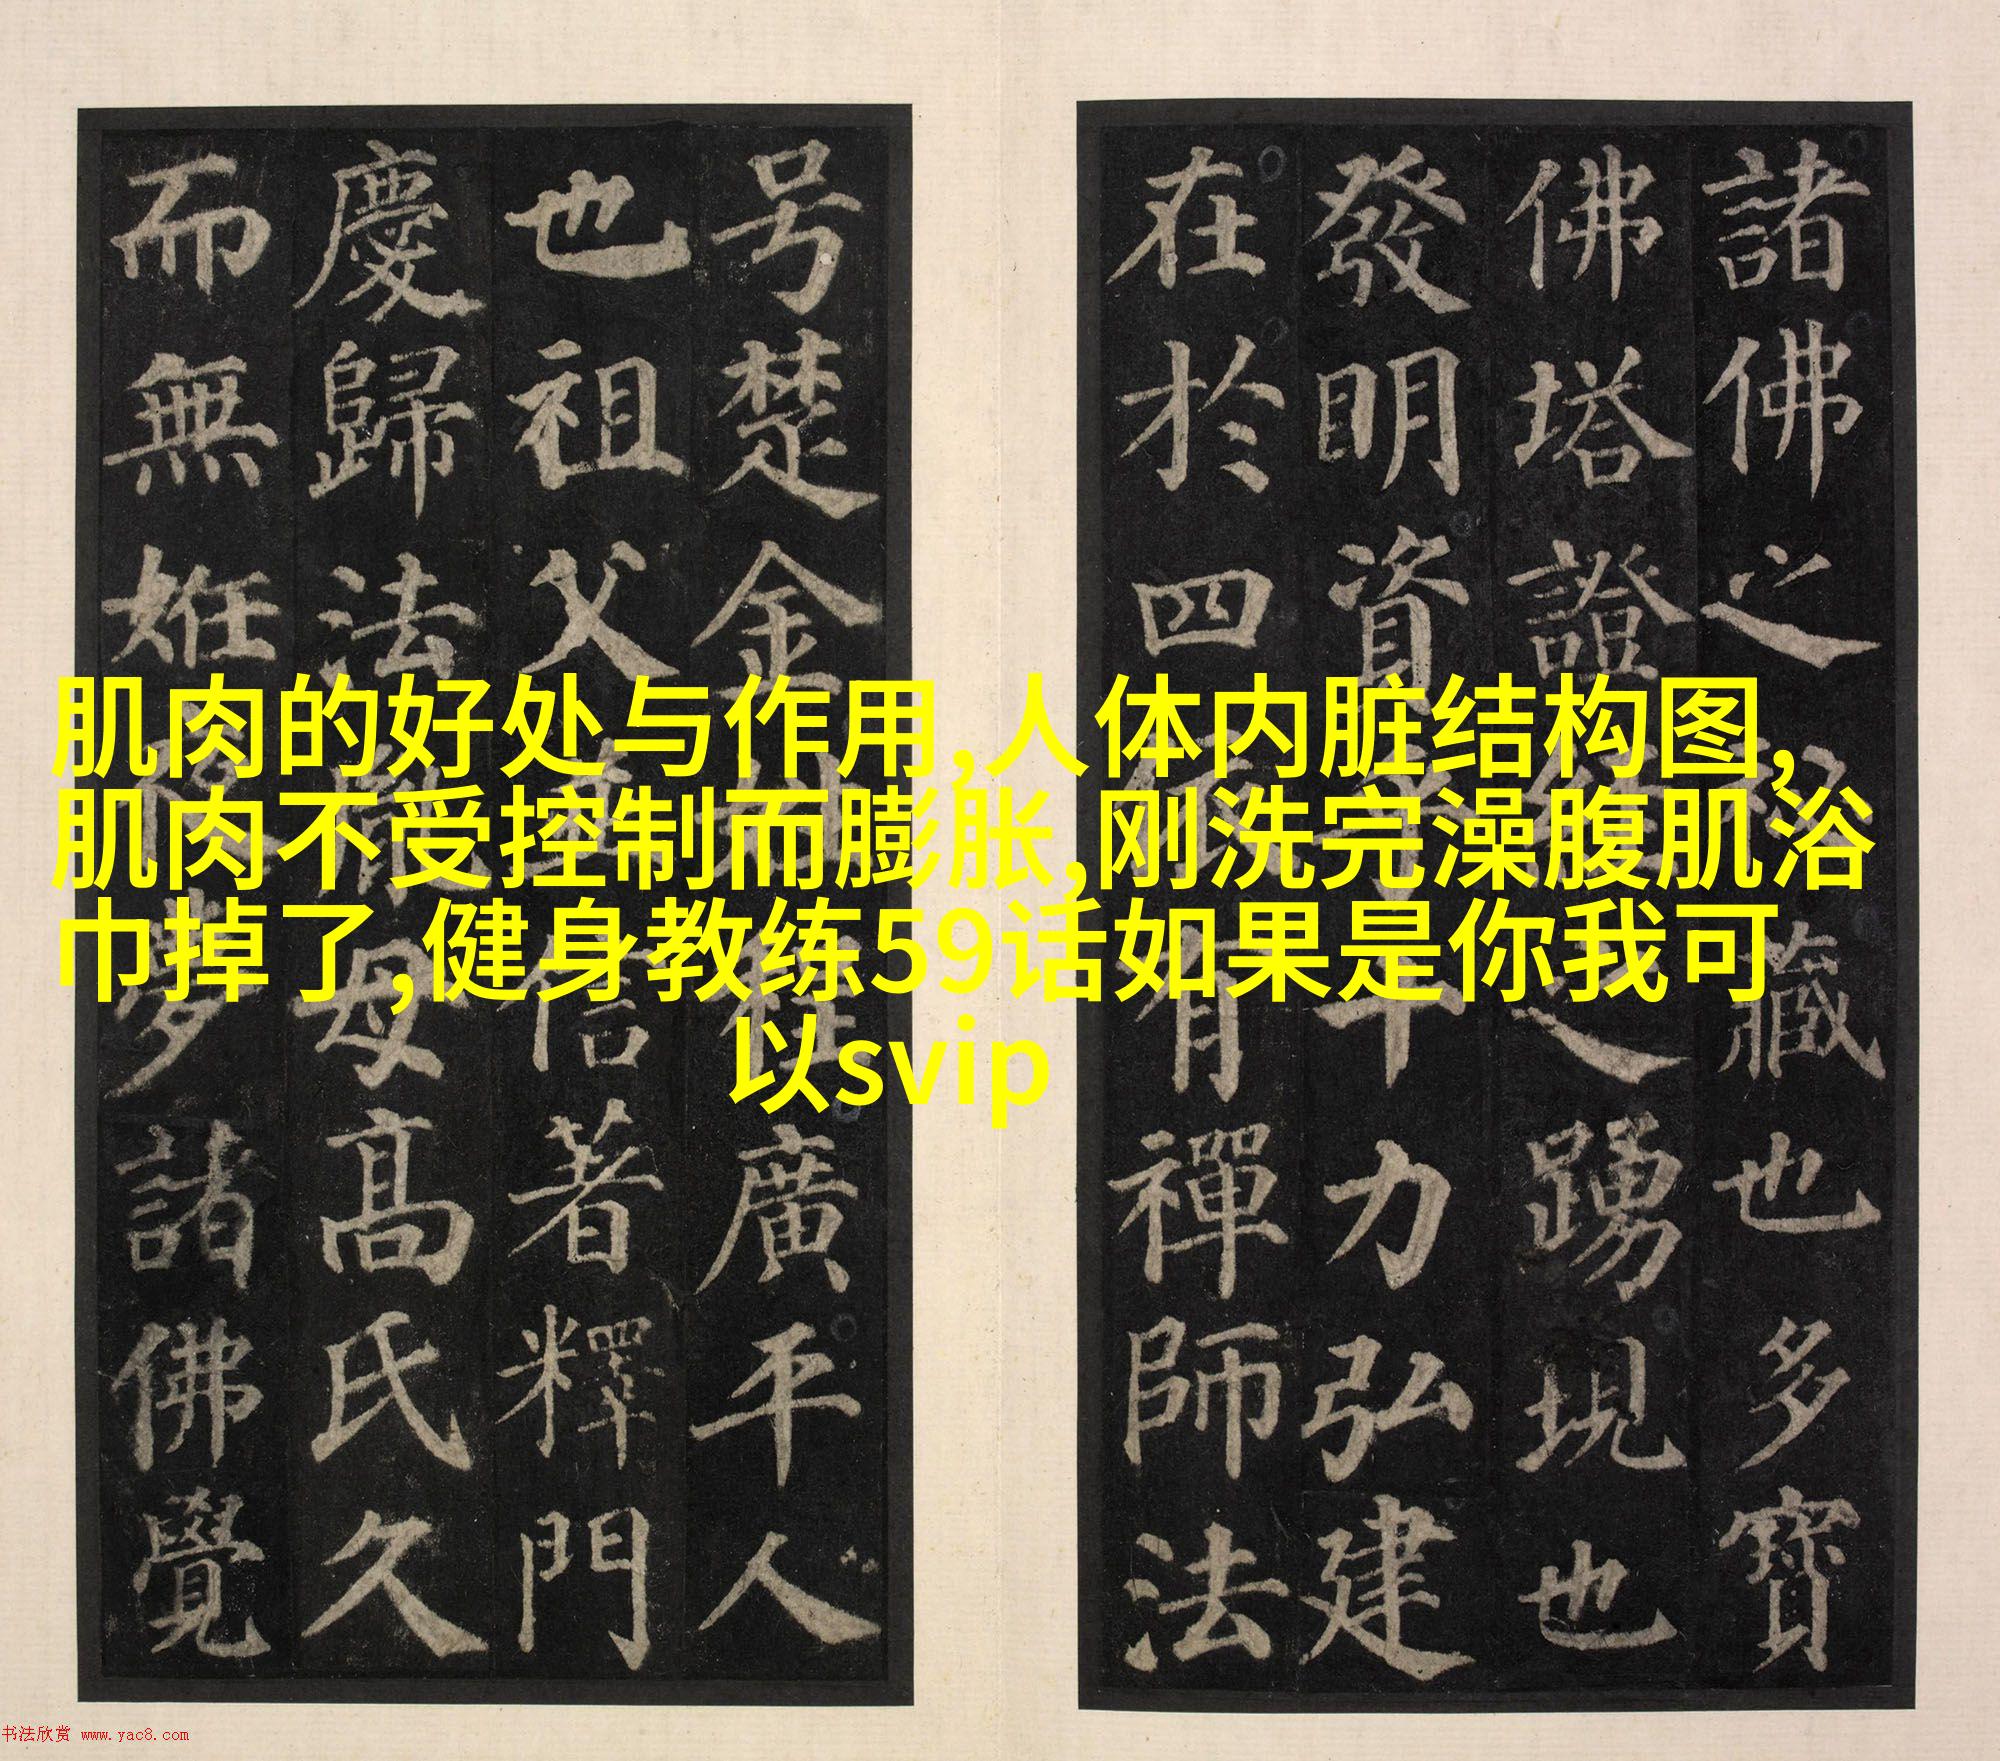 諸佛之秘藏也多寶
佛塔證經之踴現也
發明資乎十力弘建
在於四依有禪師法
号楚金姓程廣平人
也祖父並信著釋門
慶歸法胤母高氏久
而無姙夜夢諸佛覺
肌肉的好处与作用,人体内脏结构图,
肌肉不受控制而膨胀,刚洗完澡腹肌浴
巾掉了,健身教练59话如果是你我可
以svip
书法欣赏 www.yac8.com